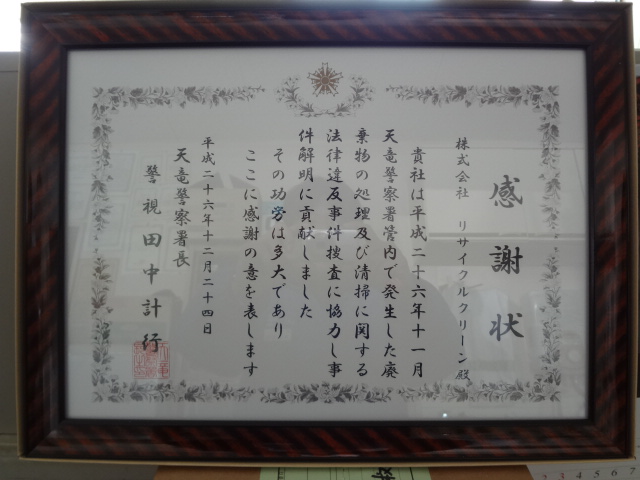 感謝状
株式会社 リサイクルクリーン殿
貴社は平成二十六年十一月
天竜警察署管内で発生した廃
棄物の処理及び清掃に関する
法律違反事件捜査に協力し事
件解明に貢献しました
その功労は多大であり
ここに感謝の意を表します
平成二十六年十二月二十四日
天竜警察署長
警視田中計行
2 3 4 5 6 7